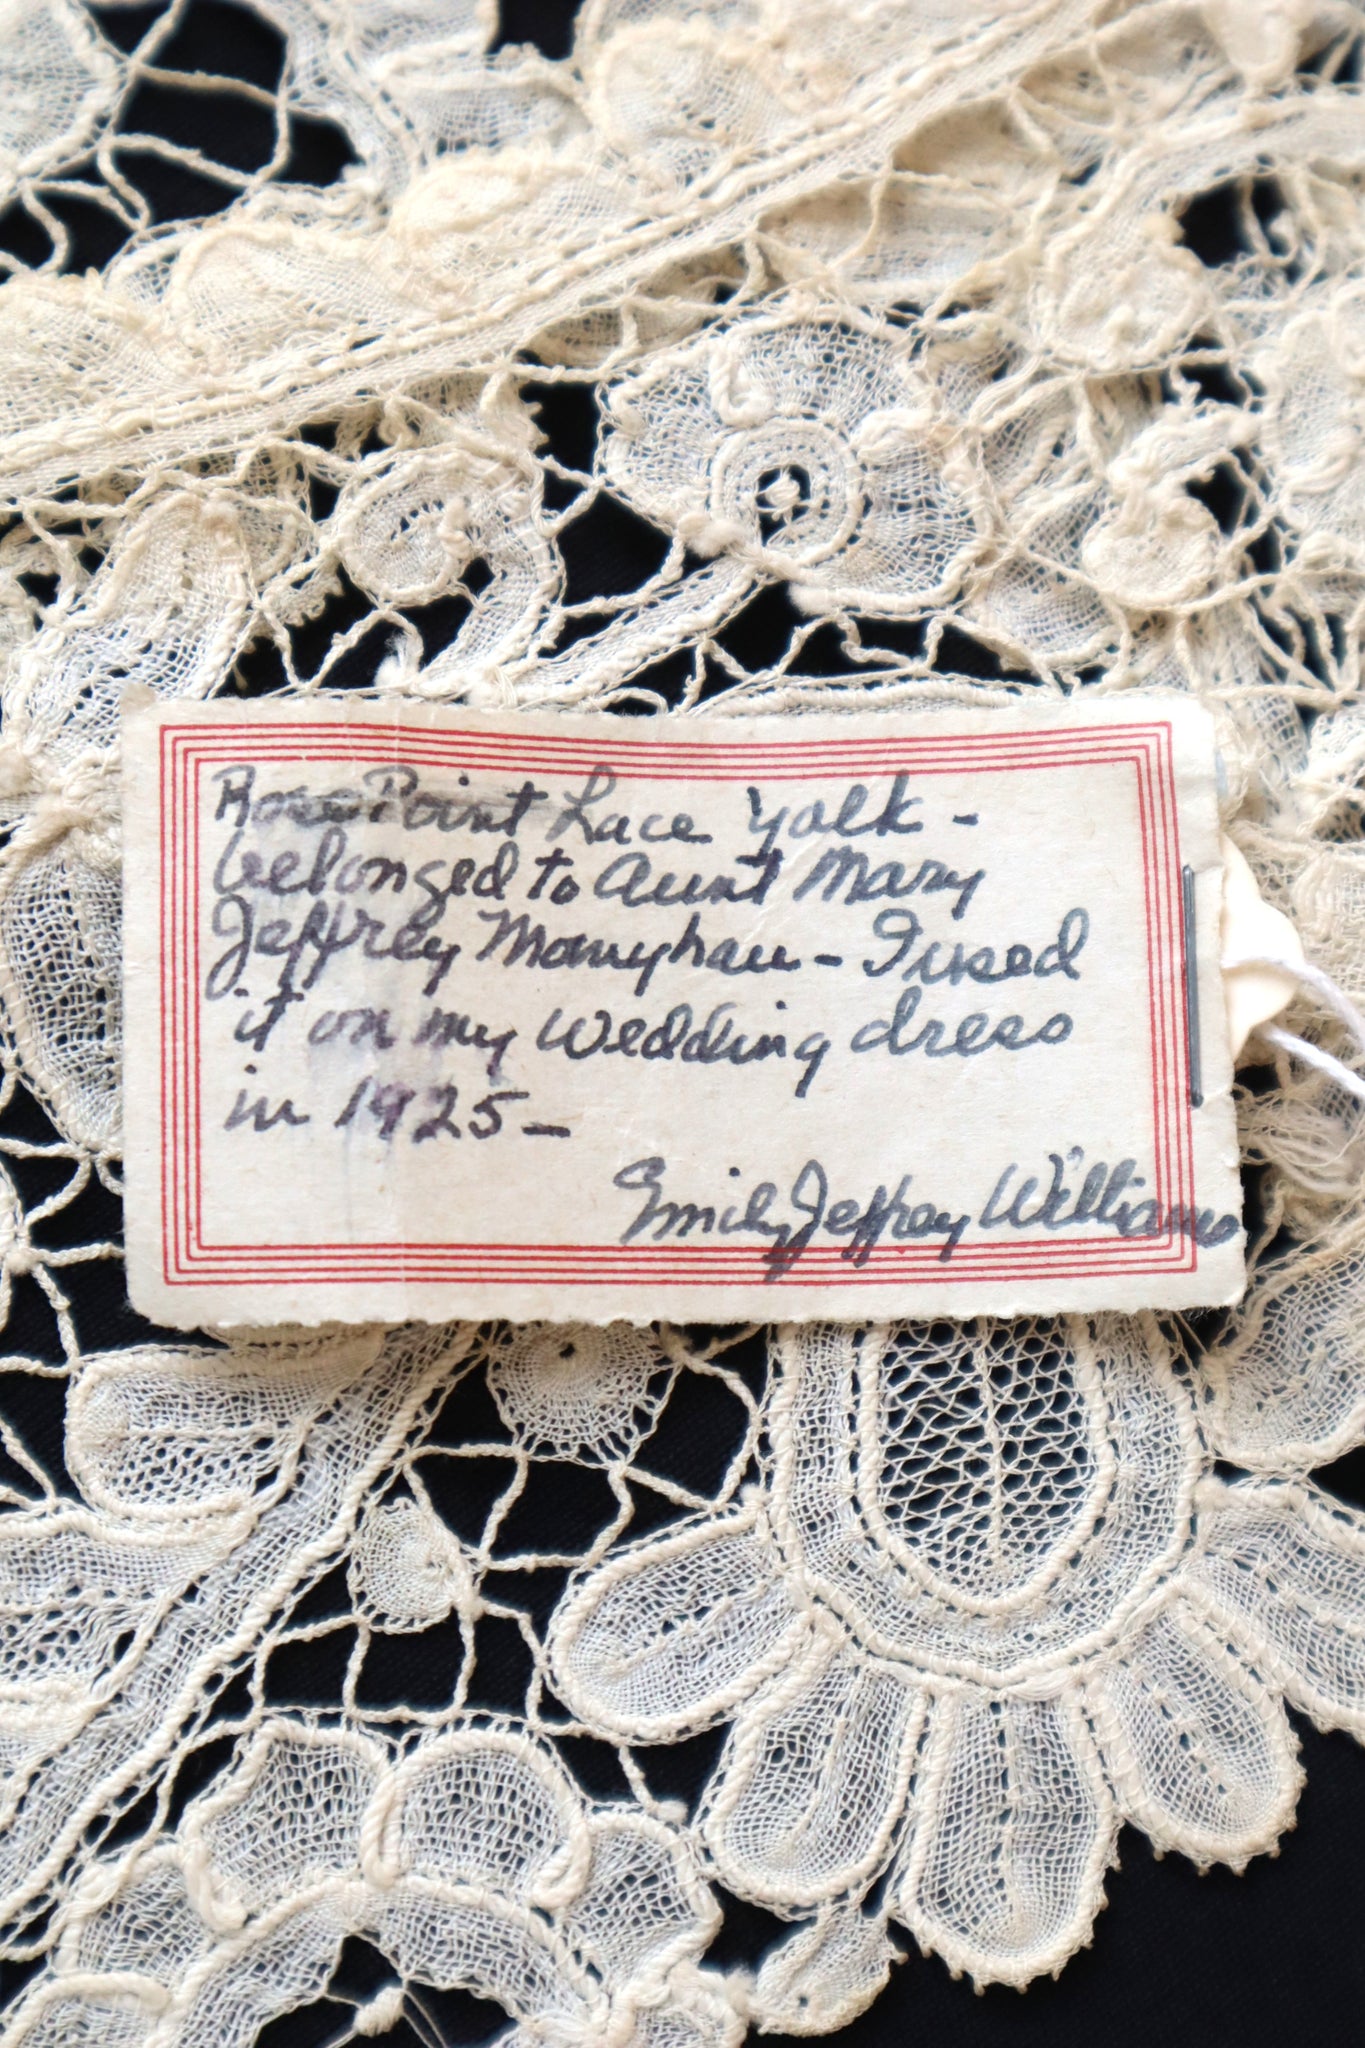 Rose Point Lace Yolk -
belonged to Aunt Mary
Jeffrey - I used
it on my wedding dress
in 1925 -
Emily Jeffrey Williams